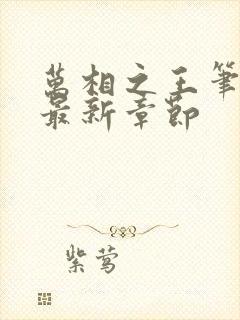 萬相之王筆
最新章節
紫莺